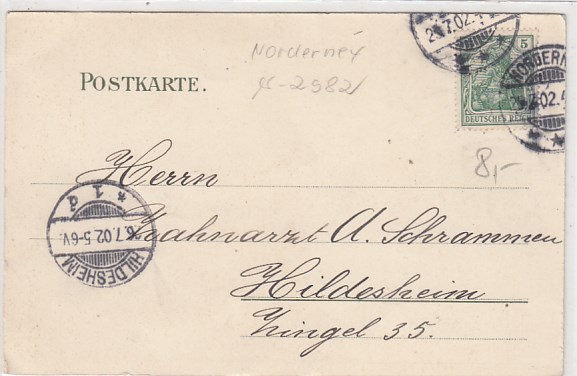 Norderney
POSTKARTE.
5
DEUTSCHES REICH
7.02.
NORDERN
02.
8,-
Herrn
Zahnarzt A. Schrammen
Hildesheim
Zingel 35.
* 1 d
6.7.02.5-6V.
HILDESHEIM